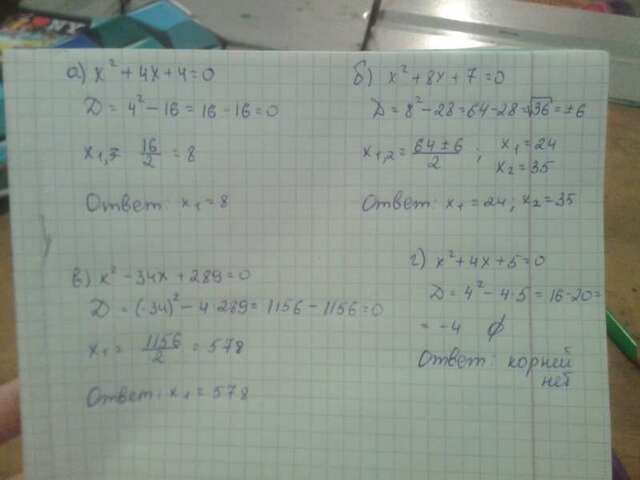 а) x² + 4x + 4 = 0
D = 4² - 16 = 16 - 16 = 0
x₁ = 16/2 = 8
Ответ: x₁ = 8
б) x² + 8x + 7 = 0
D = 8² - 28 = 64 - 28 = √36 = ±6
x₁,₂ = 64 ± 6/2 ; x₁ = 24
x₂ = 35
Ответ: x₁ = 24; x₂ = 35
в) x² - 34x + 289 = 0
D = (-34)² - 4·289 = 1156 - 1156 = 0
x₁ = 1156/2 = 578
Ответ: x₁ = 578
г) x² + 4x + 5 = 0
D = 4² - 4·5 = 16 - 20 =
= -4 ∅
Ответ: корней
нет